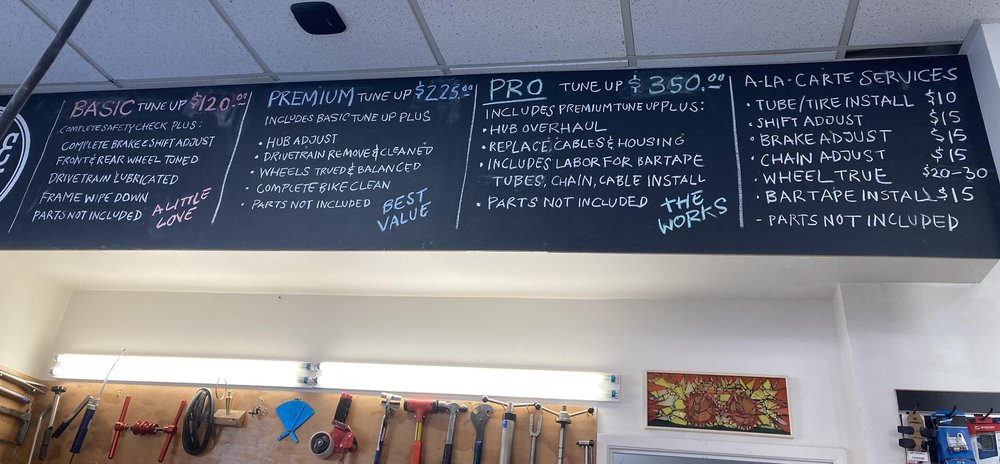 BASIC TUNE UP $120.00
COMPLETE SAFETY CHECK PLUS:
COMPLETE BRAKE & SHIFT ADJUST
FRONT & REAR WHEEL TUNED
DRIVETRAIN LUBRICATED
FRAME WIPE DOWN
PARTS NOT INCLUDED
A LITTLE
LOVE
PREMIUM TUNE UP $225.00
INCLUDES BASIC TUNE UP PLUS
• HUB ADJUST
• DRIVETRAIN REMOVE & CLEANED
• WHEELS TRUED & BALANCED
• COMPLETE BIKE CLEAN
• PARTS NOT INCLUDED
BEST
VALUE
PRO TUNE UP $350.00
INCLUDES PREMIUM TUNE UP PLUS:
• HUB OVERHAUL
• REPLACE CABLES & HOUSING
• INCLUDES LABOR FOR BARTAPE
TUBES, CHAIN, CABLE INSTALL
• PARTS NOT INCLUDED
THE
WORKS
A-LA-CARTE SERVICES
• TUBE/TIRE INSTALL $10
• SHIFT ADJUST $15
• BRAKE ADJUST $15
• CHAIN ADJUST $15
• WHEEL TRUE $20-30
• BARTAPE INSTALL $15
- PARTS NOT INCLUDED